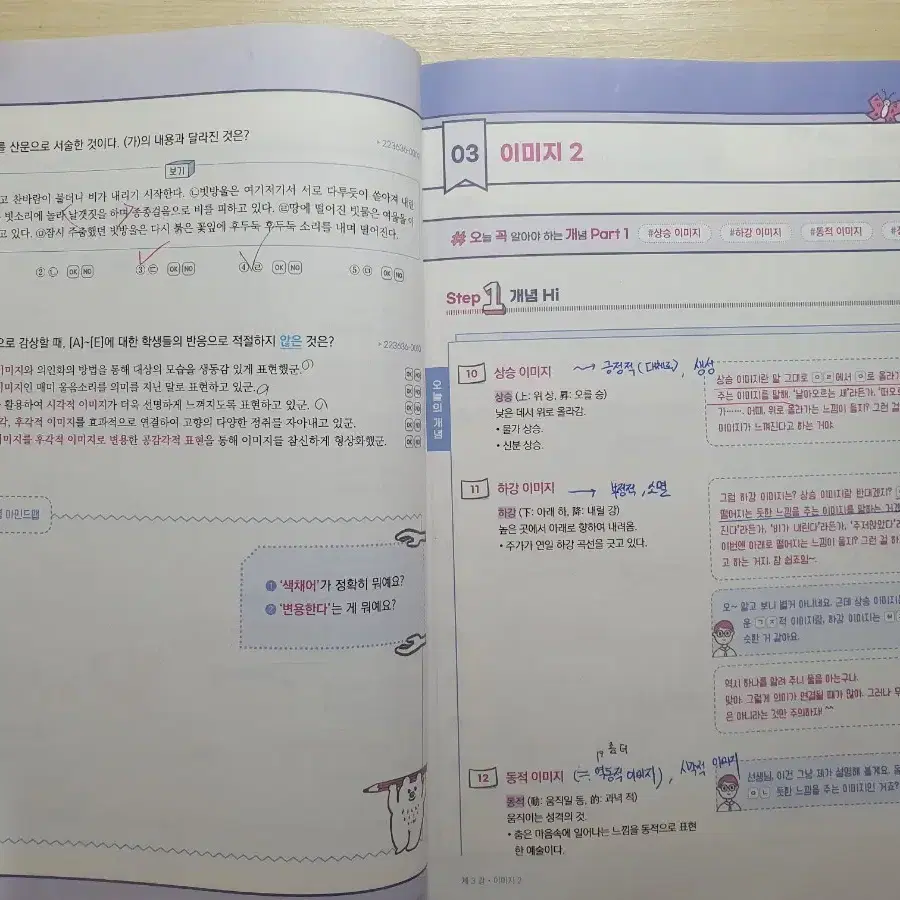 를 산문으로 서술한 것이다. (가)의 내용과 달라진 것은?
▸ 223636-00
보기
고 찬바람이 불더니 비가 내리기 시작한다. ㉡빗방울은 여기저기서 서로 다투듯이 쏟아져 내린
빗소리에 놀라 날갯짓을 하며 종종걸음으로 비를 피하고 있다. ㉣땅에 떨어진 빗물은 여울을 이
고 있다. ㉤잠시 주춤했던 빗방울은 다시 붉은 꽃잎에 후두둑 후두둑 소리를 내며 떨어진다.
② ㉡ OK NO ③ ㉢ OK NO ④ ㉣ OK NO ⑤ ㉤ OK NO
으로 감상할 때, [A]~[E]에 대한 학생들의 반응으로 적절하지 않은 것은?
▸ 223636-00
이미지와 의인화의 방법을 통해 대상의 모습을 생동감 있게 표현했군.
이미지인 매미 울음소리를 의미를 지닌 말로 표현하고 있군.
활용하여 시각적 이미지가 더욱 선명하게 느껴지도록 표현하고 있군.
각, 후각적 이미지를 효과적으로 연결하여 고향의 다양한 정경을 자아내고 있군.
이미지를 후각적 이미지로 변용한 공감각적 표현을 통해 이미지를 참신하게 형상화했군.
마인드맵
1 '색채어'가 정확히 뭐예요?
2 '변용한다'는 게 뭐예요?
03 이미지 2
# 오늘 꼭 알아야 하는 개념 Part 1 #상승 이미지 #하강 이미지 #동적 이미지
Step 1 개념 Hi
오늘의 개념
10 상승 이미지 → 긍정적 (대체로), 생성
상승 (上: 위 상, 昇: 오를 승)
낮은 데서 위로 올라감.
• 물가 상승.
• 신분 상승.
상승 이미지란 말 그대로 ㅇㄹ에서 ㅇ로 올라가
주는 이미지를 말해. '날아오르는 새'라든가, '떠오르
가……. 어때, 위로 올라가는 느낌이 들지? 그런 걸
이미지가 느껴진다고 하는 거야.
11 하강 이미지 → 부정적, 소멸
하강 (下: 아래 하, 降: 내릴 강)
높은 곳에서 아래로 향하여 내려옴.
• 주가가 연일 하강 곡선을 긋고 있다.
그럼 하강 이미지는? 상승 이미지랑 반대겠지?
떨어지는 듯한 느낌을 주는 이미지를 말하는 거겠
진다'라든가, '비가 내린다'라든가, '주저앉았다'라
이번엔 아래로 떨어지는 느낌이 들지? 그런 걸 하
고 하는 거지. 참 쉽죠잉~.
오~ 알고 보니 별거 아니네요. 근데 상승 이미지는
운 ㄱㅈ적 이미지랑, 하강 이미지는
슷한 거 같아요.
역시 하나를 알려 주니 둘을 아는구나.
맞아. 그렇게 의미가 연결될 때가 많아. 그러나 무
은 아니라는 것만 주의하자! ^^
좀 더
12 동적 이미지 (≒ 역동적 이미지), 시각적 이미지
동적 (動: 움직일 동, 的: 과녁 적)
움직이는 성격의 것.
• 춤은 마음속에 일어나는 느낌을 동적으로 표현
한 예술이다.
선생님, 이건 그냥 제가 설명해 볼게요. 움
ㅇㄴ 듯한 느낌을 주는 이미지인 거죠?
제 3 강 • 이미지 2